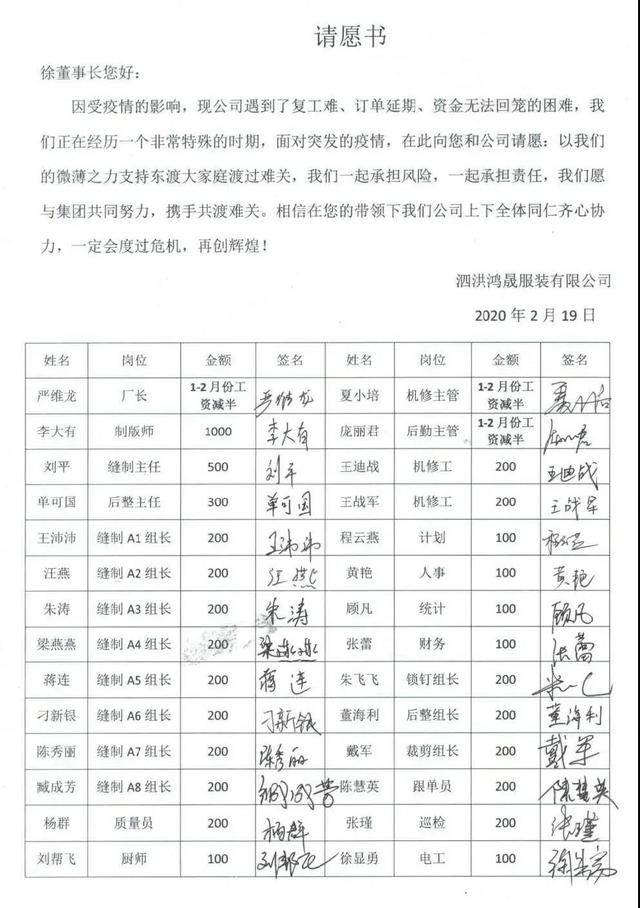 请愿书
徐董事长您好：
因受疫情的影响，现公司遇到了复工难、订单延期、资金无法回笼的困难，我
们正在经历一个非常特殊的时期，面对突发的疫情，在此向您和公司请愿：以我们
的微薄之力支持东渡大家庭渡过难关，我们一起承担风险，一起承担责任，我们愿
与集团共同努力，携手共渡难关。相信在您的带领下我们公司上下全体同仁齐心协
力，一定会度过危机，再创辉煌！
泗洪鸿晟服装有限公司
2020 年 2 月 19 日
姓名 岗位 金额 签名 姓名 岗位 金额 签名
严维龙 厂长 1-2 月份工资减半 严维龙 夏小培 机修主管 1-2 月份工资减半
李大有 制版师 1000 李大有 庞丽君 后勤主管 1-2 月份工资减半
刘平 缝制主任 500 刘平 王迪战 机修工 200 王迪战
单可国 后整主任 300 单可国 王战军 机修工 200 王战军
王沛沛 缝制 A1 组长 200 王沛沛 程云燕 计划 100
汪燕 缝制 A2 组长 200 汪燕 黄艳 人事 100 黄艳
朱涛 缝制 A3 组长 200 朱涛 顾凡 统计 100 顾凡
梁燕燕 缝制 A4 组长 200 梁燕燕 张蕾 财务 100 张蕾
蒋连 缝制 A5 组长 200 蒋连 朱飞飞 锁钉组长 200
刁新银 缝制 A6 组长 200 刁新银 董海利 后整组长 200 董海利
陈秀丽 缝制 A7 组长 200 陈秀丽 戴军 裁剪组长 200 戴军
臧成芳 缝制 A8 组长 200 陈慧英 跟单员 200 陈慧英
杨群 质量员 200 杨群 张瑾 巡检 200 张瑾
刘帮飞 厨师 100 刘帮飞 徐显勇 电工 100